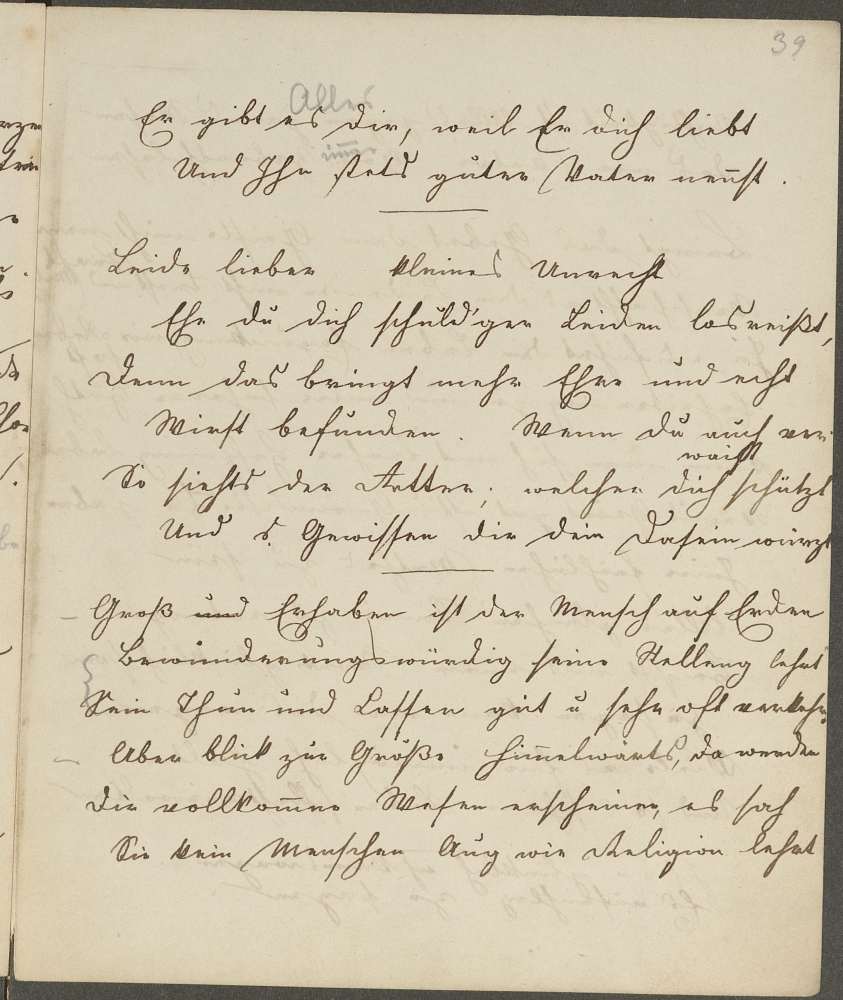 39
Alles
Er gibt es dir, weil Er dich liebt
immer
Und Ihn stets guten Vater nen̅st.
Leide lieber kleines Unrecht
Ehe du dich schuld'ger Leiden losreißt,
Denn das bringt mehr Ehre und echt
Wirst befunden. Wenn du auch ver-
waist
So siehts der Retter, welcher dich schützt
Und s. Gewissen dir dein Dasein würzt
Groß und Erhaben ist der Mensch auf Erden
Bewunderungswürdig seine Stellung lehrt
Sein Thun und Lassen gut u sehr oft verkehrt
Aber blick zur Größe him̅elwärts, da werden
Dir vollkom̅ne Wesen erscheinen, es sah
Sie kein Menschen Aug wie Religion lehrt